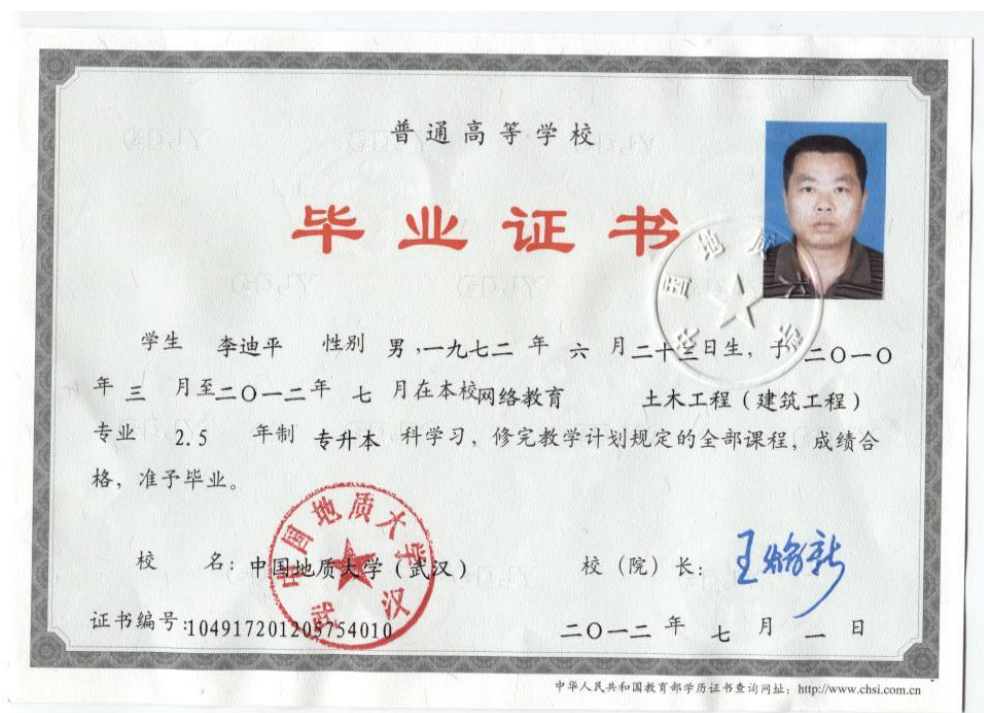 普通高等学校
毕业证书
学生 李迪平 性别 男,一九七二 年 六 月二十三日生,于 二〇一〇
年 三 月至二〇一二年 七 月在本校网络教育 土木工程(建筑工程)
专业 2.5 年制 专升本 科学习,修完教学计划规定的全部课程,成绩合
格,准予毕业。
中国地质大学
武汉
校 名:中国地质大学(武汉) 校(院)长:王焰新
证书编号:104917201205754010 二〇一二 年 七 月 一 日
中华人民共和国教育部学历证书查询网址:http://www.chsi.com.cn